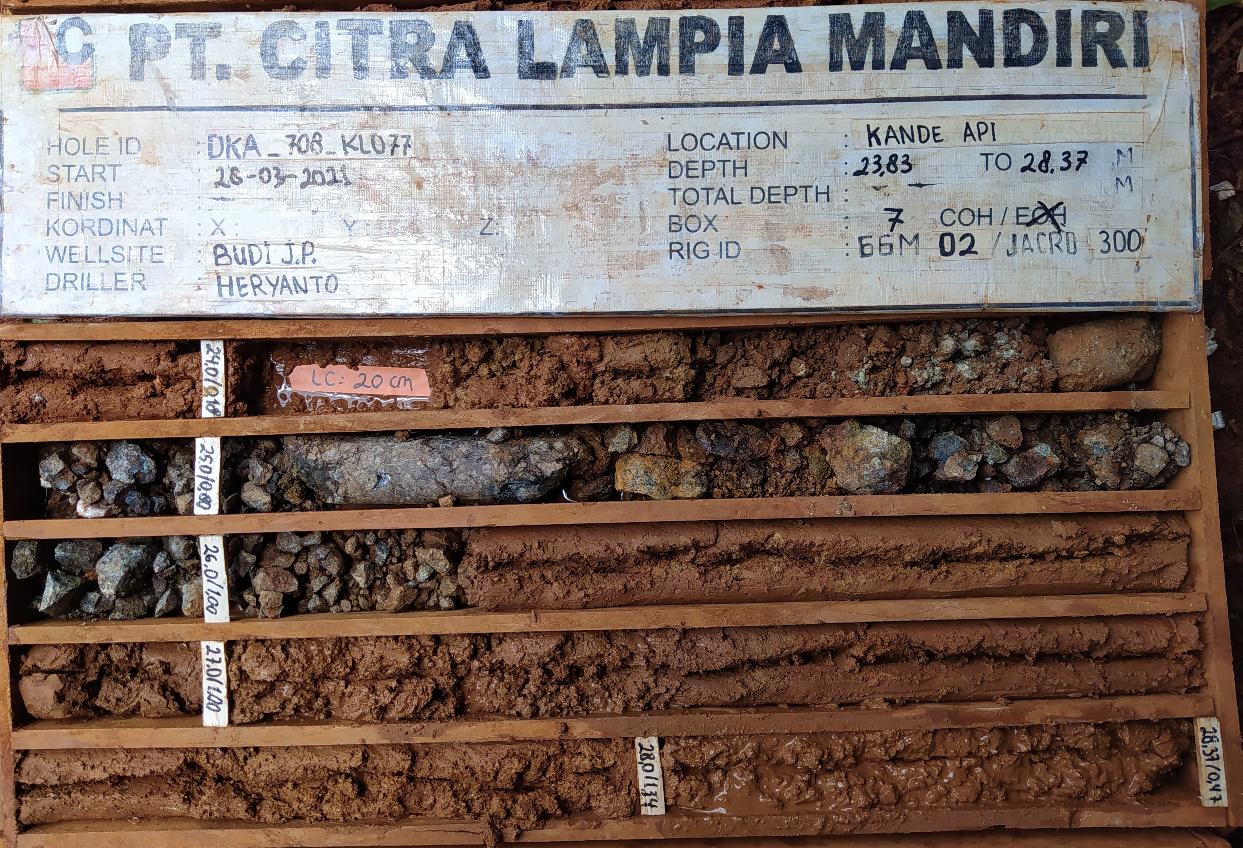 C PT. CITRA LAMPIA MANDIRI
HOLE ID : DKA_708_KL077
START : 28-03-2021
FINISH :
KORDINAT : X : Y : Z:
WELLSITE : BUDI J.P.
DRILLER : HERYANTO
LOCATION : KANDE API
DEPTH : 23,83 TO 28.37 M
TOTAL DEPTH : M
BOX : 7 COH / EOH
RIG ID : GGM 02 / JACRO 300
LC : 20 cm
25.0/0.80
26.0/1.00
27.0/1.00
28.0/1.14